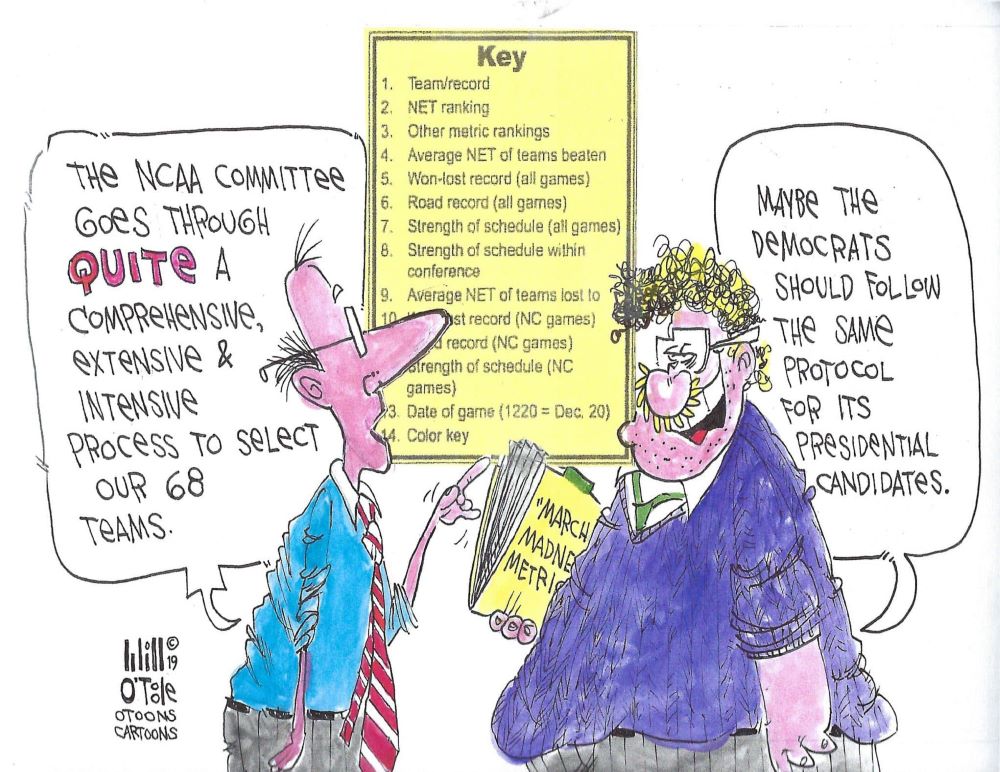 Key
1. Team/record
2. NET ranking
3. Other metric rankings
4. Average NET of teams beaten
5. Won-lost record (all games)
6. Road record (all games)
7. Strength of schedule (all games)
8. Strength of schedule within
conference
9. Average NET of teams lost to
10. st record (NC games)
record (NC games)
strength of schedule (NC
games)
3. Date of game (1220 = Dec. 20)
14. Color key
THE NCAA COMMITTEE
GOES THROUGH
QUITE A
COMPREHENSIVE,
EXTENSIVE &
INTENSIVE
PROCESS TO SELECT
OUR 68
TEAMS.
MAYBE THE
DEMOCRATS
SHOULD FOLLOW
THE SAME
PROTOCOL
FOR ITS
PRESIDENTIAL
CANDIDATES.
"MARCH
MADNE
METRIC
Will © 19
O'Toole
OTOONS
CARTOONS